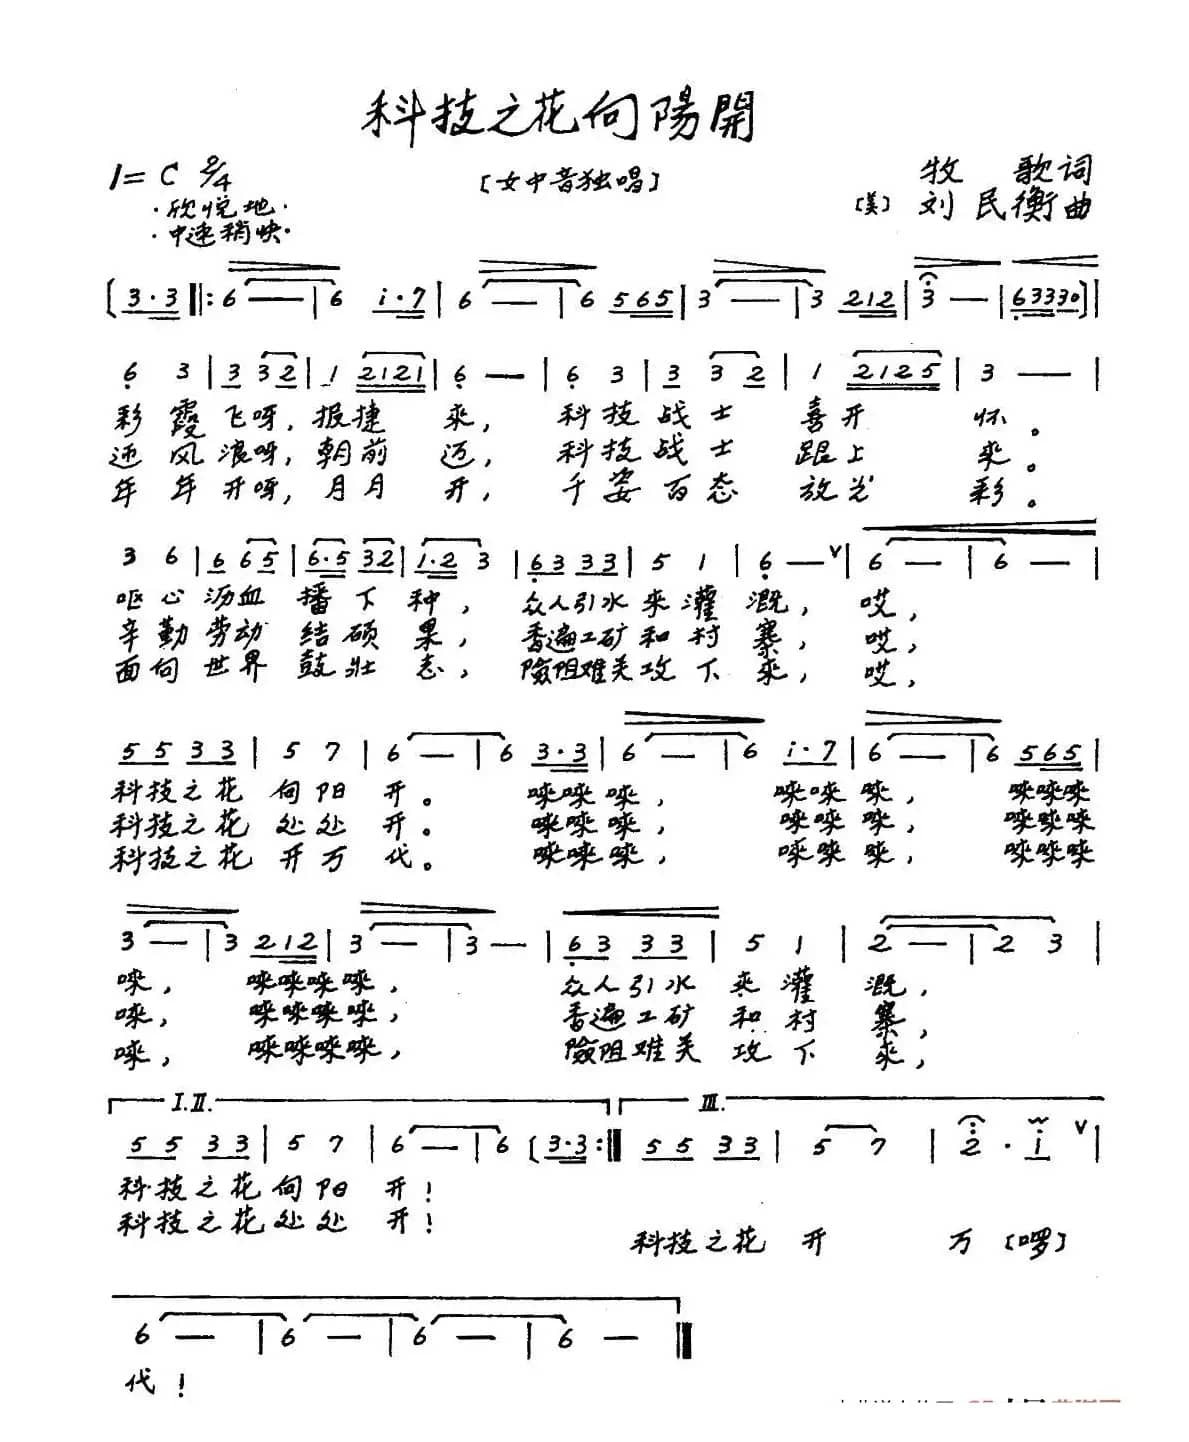 科技之花向陽開
1=C 2/4
〔女中音独唱〕
牧 歌词
·欣悦地·
〔美〕刘民衡曲
·中速稍快·
〔3·3‖:6 — |6 i·7|6 — |6 565|3 — |3 212|3 — |63330〕|
6 3|3 32|1 2121|6 —|6 3|3 32|1 2125|3 —|
彩霞飞呀,报捷 来, 科技战士 喜开 怀。
迎风浪呀,朝前 迈, 科技战士 跟上 来。
年年开呀,月月 开, 千姿百态 放光 彩。
3 6|6 65|6·5 32|1·2 3|63 33|5 1|6 — ∨|6 — |6 — |
呕心沥血 播下种, 众人引水来灌溉, 哎,
辛勤劳动 结硕果, 香遍工矿和村寨, 哎,
面向世界 鼓壮志, 險阻难关攻下来, 哎,
55 33|5 7|6 — |6 3·3|6 — |6 i·7|6 — |6 565|
科技之花 向阳 开。 唻唻唻, 唻唻唻, 唻唻唻
科技之花 处处 开。 唻唻唻, 唻唻唻, 唻唻唻
科技之花 开万 代。 唻唻唻, 唻唻唻, 唻唻唻
3 — |3 212|3 — |3 — |63 33|5 1|2 — |2 3|
唻, 唻唻唻唻, 众人引水 来灌 溉,
唻, 唻唻唻唻, 香遍工矿 和村 寨,
唻, 唻唻唻唻, 險阻难关 攻下 来,
I.II. III.
55 33|5 7|6 — |6〔3·3:‖55 33|5 7|2·i ∨|
科技之花向阳 开!
科技之花处处 开!
科技之花 开 万〔啰〕
6 — |6 — |6 — |6 — ‖
代!